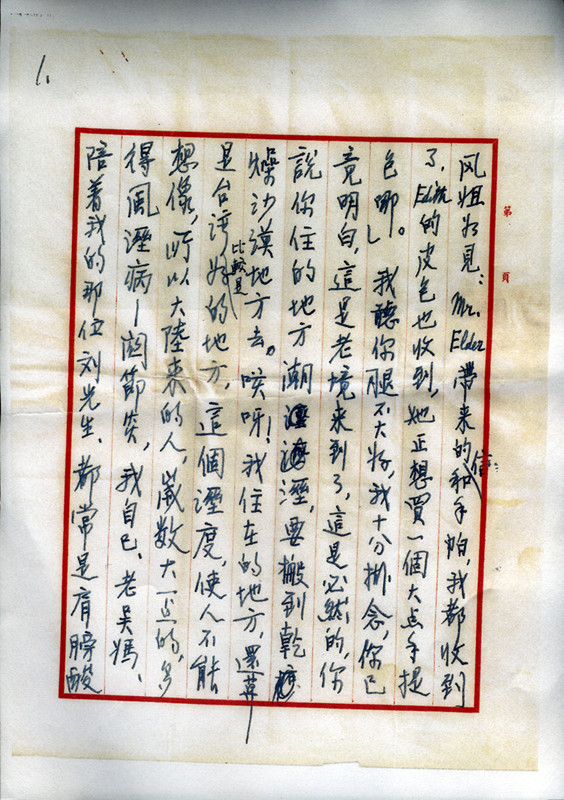 1.
第 頁
风姐如見:Mr. Elder 帶来的信和手帕,我都收到
了,Edith的皮包也收到,她正想買一個大点手提
包哪。我聽你腿不大好,我十分掛念,你已
竟明白,這是老境来到了,這是必然的,你
說你住的地方潮溼,要搬到乾
燥沙漠地方去。唉呀!我住在的地方,還算
是台湾比較是好的地方,這個溼度,使人不能
想像,所以大陸来的人,歲数大一点的,多
得風溼病—関節炎,我自己、老吴媽、
陪着我的那位刘先生、都常是肩膀酸